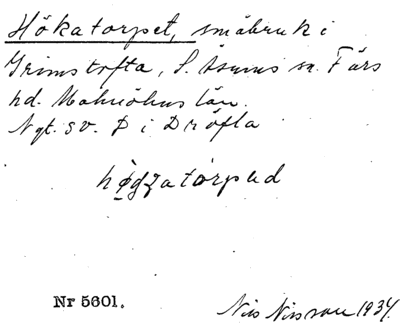 Hökatorpet, småbruk i
Grimstofta, S. Åsums sn. Färs
hd. Malmöhus län.
Ngt. sv. D i Dröfla
hø̨gzatorpəd
Nr 5601.
Nils Nilsson 1934.